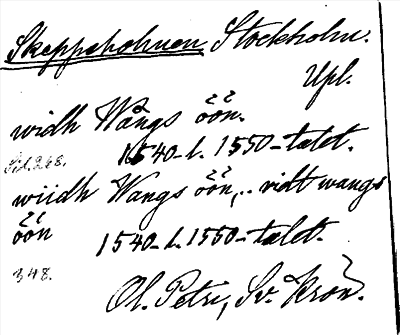 Skeppsholmen Stockholm.
Upl.
widh Wångs öön.
Sid. 268. 1540-l. 1550-talet.
wiidh Wangs öön,.. vidt wangs
öön 1540-l. 1550-talet.
348.
Ol. Petri, Sv. Krön.